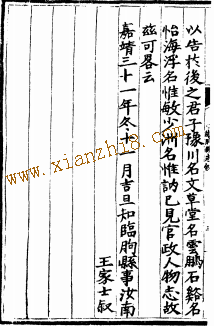 以告於後之君子豫川名文草堂名雲鵬石谿名
怡海浮名惟敏少洲名惟訥已見官政人物志故
茲可畧云
嘉靖三十一年冬十一月吉旦知臨朐縣事汝南
王家士敘
www.xianzhi8.com